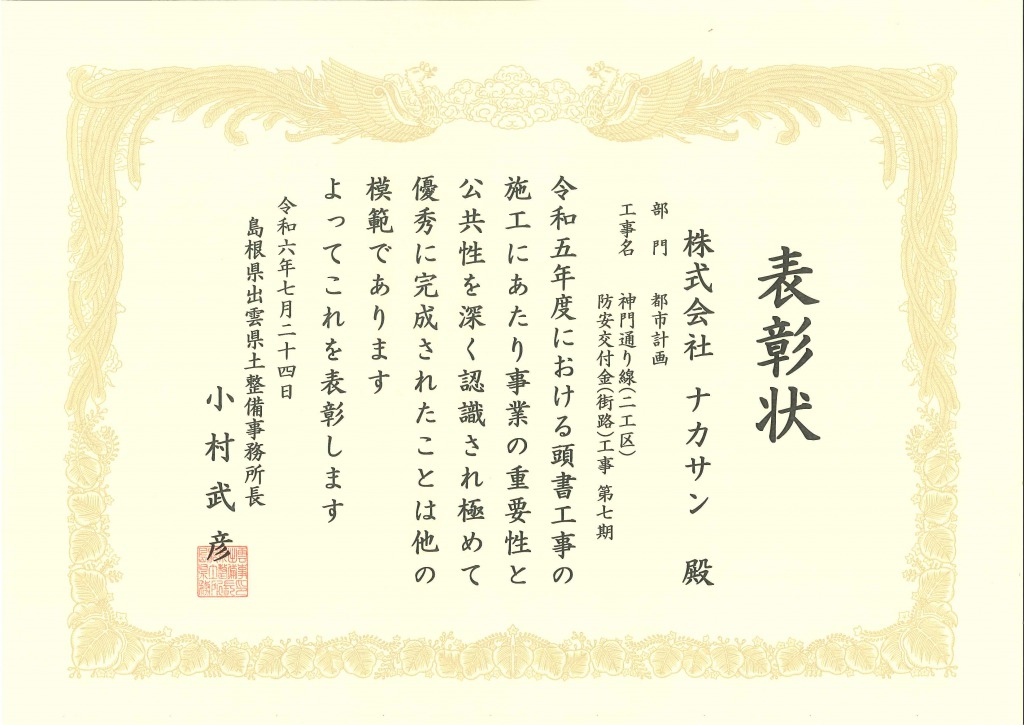 表彰状
株式会社 ナカサン 殿
部門 都市計画
工事名 神門通り線(二工区)
防安交付金(街路)工事 第七期
令和五年度における頭書工事の
施工にあたり事業の重要性と
公共性を深く認識され極めて
優秀に完成されたことは他の
模範であります
よってこれを表彰します
令和六年七月二十四日
島根県出雲県土整備事務所長
小村武彦